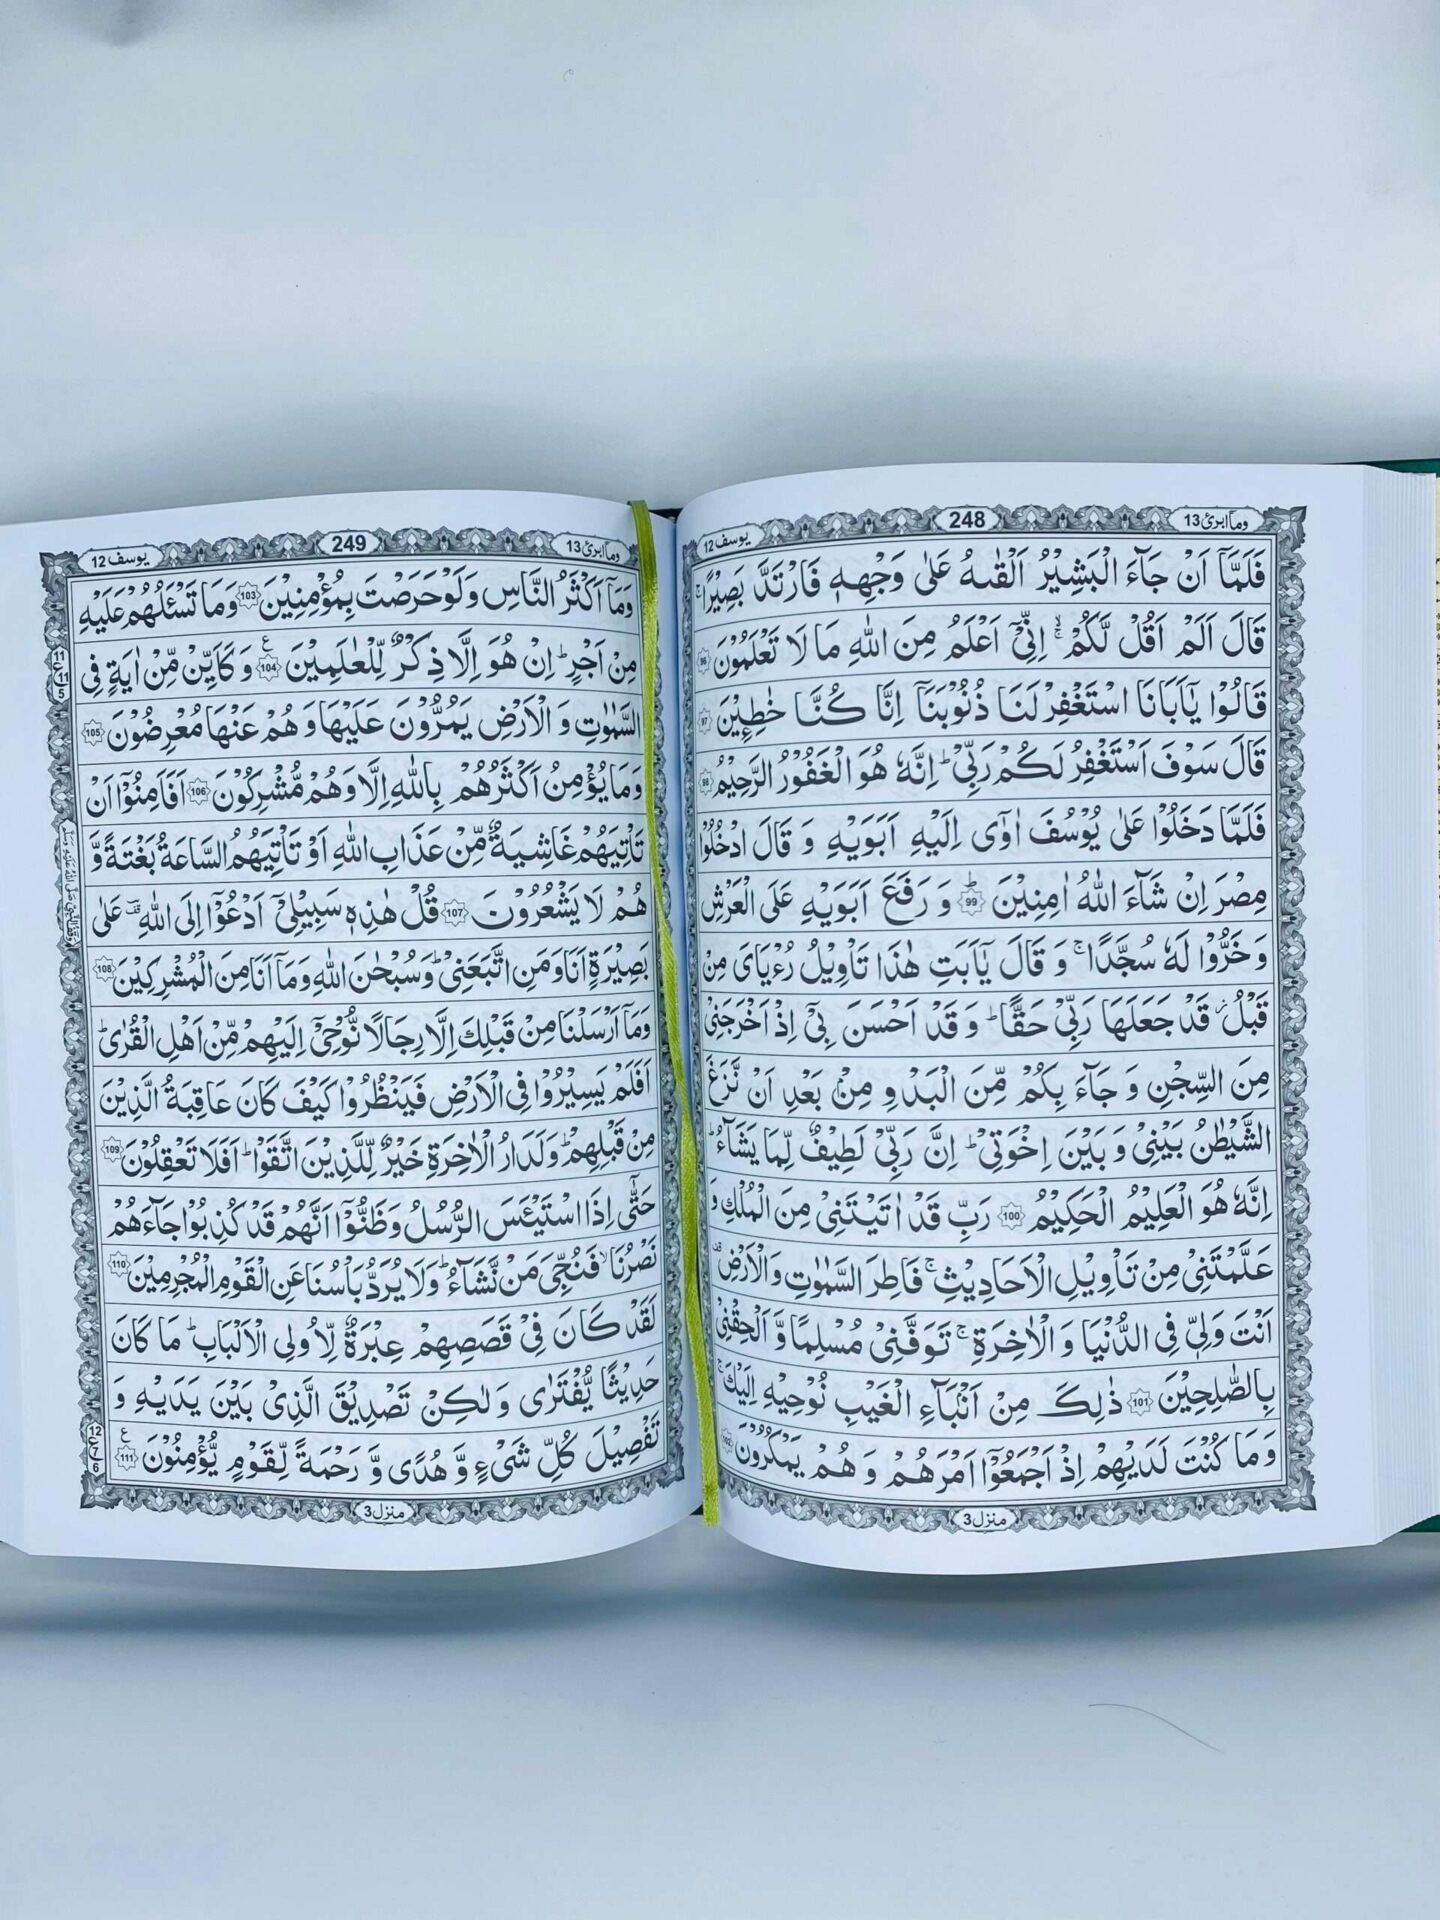 وما ابرئ 13
248
يوسف 12
فَلَمَّاۤ اَنْ جَآءَ الْبَشِيْرُ اَلْقٰىهُ عَلٰى وَجْهِهٖ فَارْتَدَّ بَصِيْرًا ۚ
قَالَ اَلَمْ اَقُلْ لَّكُمْ ۙ اِنِّىْۤ اَعْلَمُ مِنَ اللّٰهِ مَا لَا تَعْلَمُوْنَ 96
قَالُوْا يٰۤاَبَانَا اسْتَغْفِرْ لَنَا ذُنُوْبَنَاۤ اِنَّا كُنَّا خٰطِـِٕيْنَ 97
قَالَ سَوْفَ اَسْتَغْفِرُ لَكُمْ رَبِّىْ ؕ اِنَّهٗ هُوَ الْغَفُوْرُ الرَّحِيْمُ 98
فَلَمَّا دَخَلُوْا عَلٰى يُوْسُفَ اٰوٰۤى اِلَيْهِ اَبَوَيْهِ وَ قَالَ ادْخُلُوْا
مِصْرَ اِنْ شَآءَ اللّٰهُ اٰمِنِيْنَ ؕ 99 وَ رَفَعَ اَبَوَيْهِ عَلَى الْعَرْشِ
وَ خَرُّوْا لَهٗ سُجَّدًا ۚ وَ قَالَ يٰۤاَبَتِ هٰذَا تَاْوِيْلُ رُءْيَاىَ مِنْ
قَبْلُ ز قَدْ جَعَلَهَا رَبِّىْ حَقًّا ؕ وَ قَدْ اَحْسَنَ بِىْۤ اِذْ اَخْرَجَنِىْ
مِنَ السِّجْنِ وَ جَآءَ بِكُمْ مِّنَ الْبَدْوِ مِنْۢ بَعْدِ اَنْ نَّزَغَ
الشَّيْطٰنُ بَيْنِىْ وَ بَيْنَ اِخْوَتِىْ ؕ اِنَّ رَبِّىْ لَطِيْفٌ لِّمَا يَشَآءُ ؕ
اِنَّهٗ هُوَ الْعَلِيْمُ الْحَكِيْمُ 100 رَبِّ قَدْ اٰتَيْتَنِىْ مِنَ الْمُلْكِ وَ
عَلَّمْتَنِىْ مِنْ تَاْوِيْلِ الْاَحَادِيْثِ ۚ فَاطِرَ السَّمٰوٰتِ وَ الْاَرْضِ قف
اَنْتَ وَلِىّٖ فِى الدُّنْيَا وَ الْاٰخِرَةِ ۚ تَوَفَّنِىْ مُسْلِمًا وَّ اَلْحِقْنِىْ
بِالصّٰلِحِيْنَ 101 ذٰلِكَ مِنْ اَنْۢبَآءِ الْغَيْبِ نُوْحِيْهِ اِلَيْكَ ۚ
وَ مَا كُنْتَ لَدَيْهِمْ اِذْ اَجْمَعُوْۤا اَمْرَهُمْ وَ هُمْ يَمْكُرُوْنَ 102
منزل 3
وما ابرئ 13
249
يوسف 12
وَ مَاۤ اَكْثَرُ النَّاسِ وَ لَوْ حَرَصْتَ بِمُؤْمِنِيْنَ 103 وَ مَا تَسْـَٔلُهُمْ عَلَيْهِ
مِنْ اَجْرٍ ؕ اِنْ هُوَ اِلَّا ذِكْرٌ لِّلْعٰلَمِيْنَ 104 ع وَ كَاَيِّنْ مِّنْ اٰيَةٍ فِى
السَّمٰوٰتِ وَ الْاَرْضِ يَمُرُّوْنَ عَلَيْهَا وَ هُمْ عَنْهَا مُعْرِضُوْنَ 105
وَ مَا يُؤْمِنُ اَكْثَرُهُمْ بِاللّٰهِ اِلَّا وَ هُمْ مُّشْرِكُوْنَ 106 اَفَاَمِنُوْۤا اَنْ
تَاْتِيَهُمْ غَاشِيَةٌ مِّنْ عَذَابِ اللّٰهِ اَوْ تَاْتِيَهُمُ السَّاعَةُ بَغْتَةً وَّ
هُمْ لَا يَشْعُرُوْنَ 107 قُلْ هٰذِهٖ سَبِيْلِىْۤ اَدْعُوْۤا اِلَى اللّٰهِ قف عَلٰى
بَصِيْرَةٍ اَنَا وَ مَنِ اتَّبَعَنِىْ ؕ وَ سُبْحٰنَ اللّٰهِ وَ مَاۤ اَنَا مِنَ الْمُشْرِكِيْنَ 108
وَ مَاۤ اَرْسَلْنَا مِنْ قَبْلِكَ اِلَّا رِجَالًا نُّوْحِىْۤ اِلَيْهِمْ مِّنْ اَهْلِ الْقُرٰى ؕ
اَفَلَمْ يَسِيْرُوْا فِى الْاَرْضِ فَيَنْظُرُوْا كَيْفَ كَانَ عَاقِبَةُ الَّذِيْنَ
مِنْ قَبْلِهِمْ ؕ وَ لَدَارُ الْاٰخِرَةِ خَيْرٌ لِّلَّذِيْنَ اتَّقَوْا ؕ اَفَلَا تَعْقِلُوْنَ 109
حَتّٰۤى اِذَا اسْتَيْـَٔسَ الرُّسُلُ وَ ظَنُّوْۤا اَنَّهُمْ قَدْ كُذِبُوْا جَآءَهُمْ
نَصْرُنَا ۙ فَنُجِّىَ مَنْ نَّشَآءُ ؕ وَ لَا يُرَدُّ بَاْسُنَا عَنِ الْقَوْمِ الْمُجْرِمِيْنَ 110
لَقَدْ كَانَ فِىْ قَصَصِهِمْ عِبْرَةٌ لِّاُولِى الْاَلْبَابِ ؕ مَا كَانَ
حَدِيْثًا يُّفْتَرٰى وَ لٰكِنْ تَصْدِيْقَ الَّذِىْ بَيْنَ يَدَيْهِ وَ
تَفْصِيْلَ كُلِّ شَىْءٍ وَّ هُدًى وَّ رَحْمَةً لِّقَوْمٍ يُّؤْمِنُوْنَ 111 ع
منزل 3
11
ع 11
5
12
ع 7
6